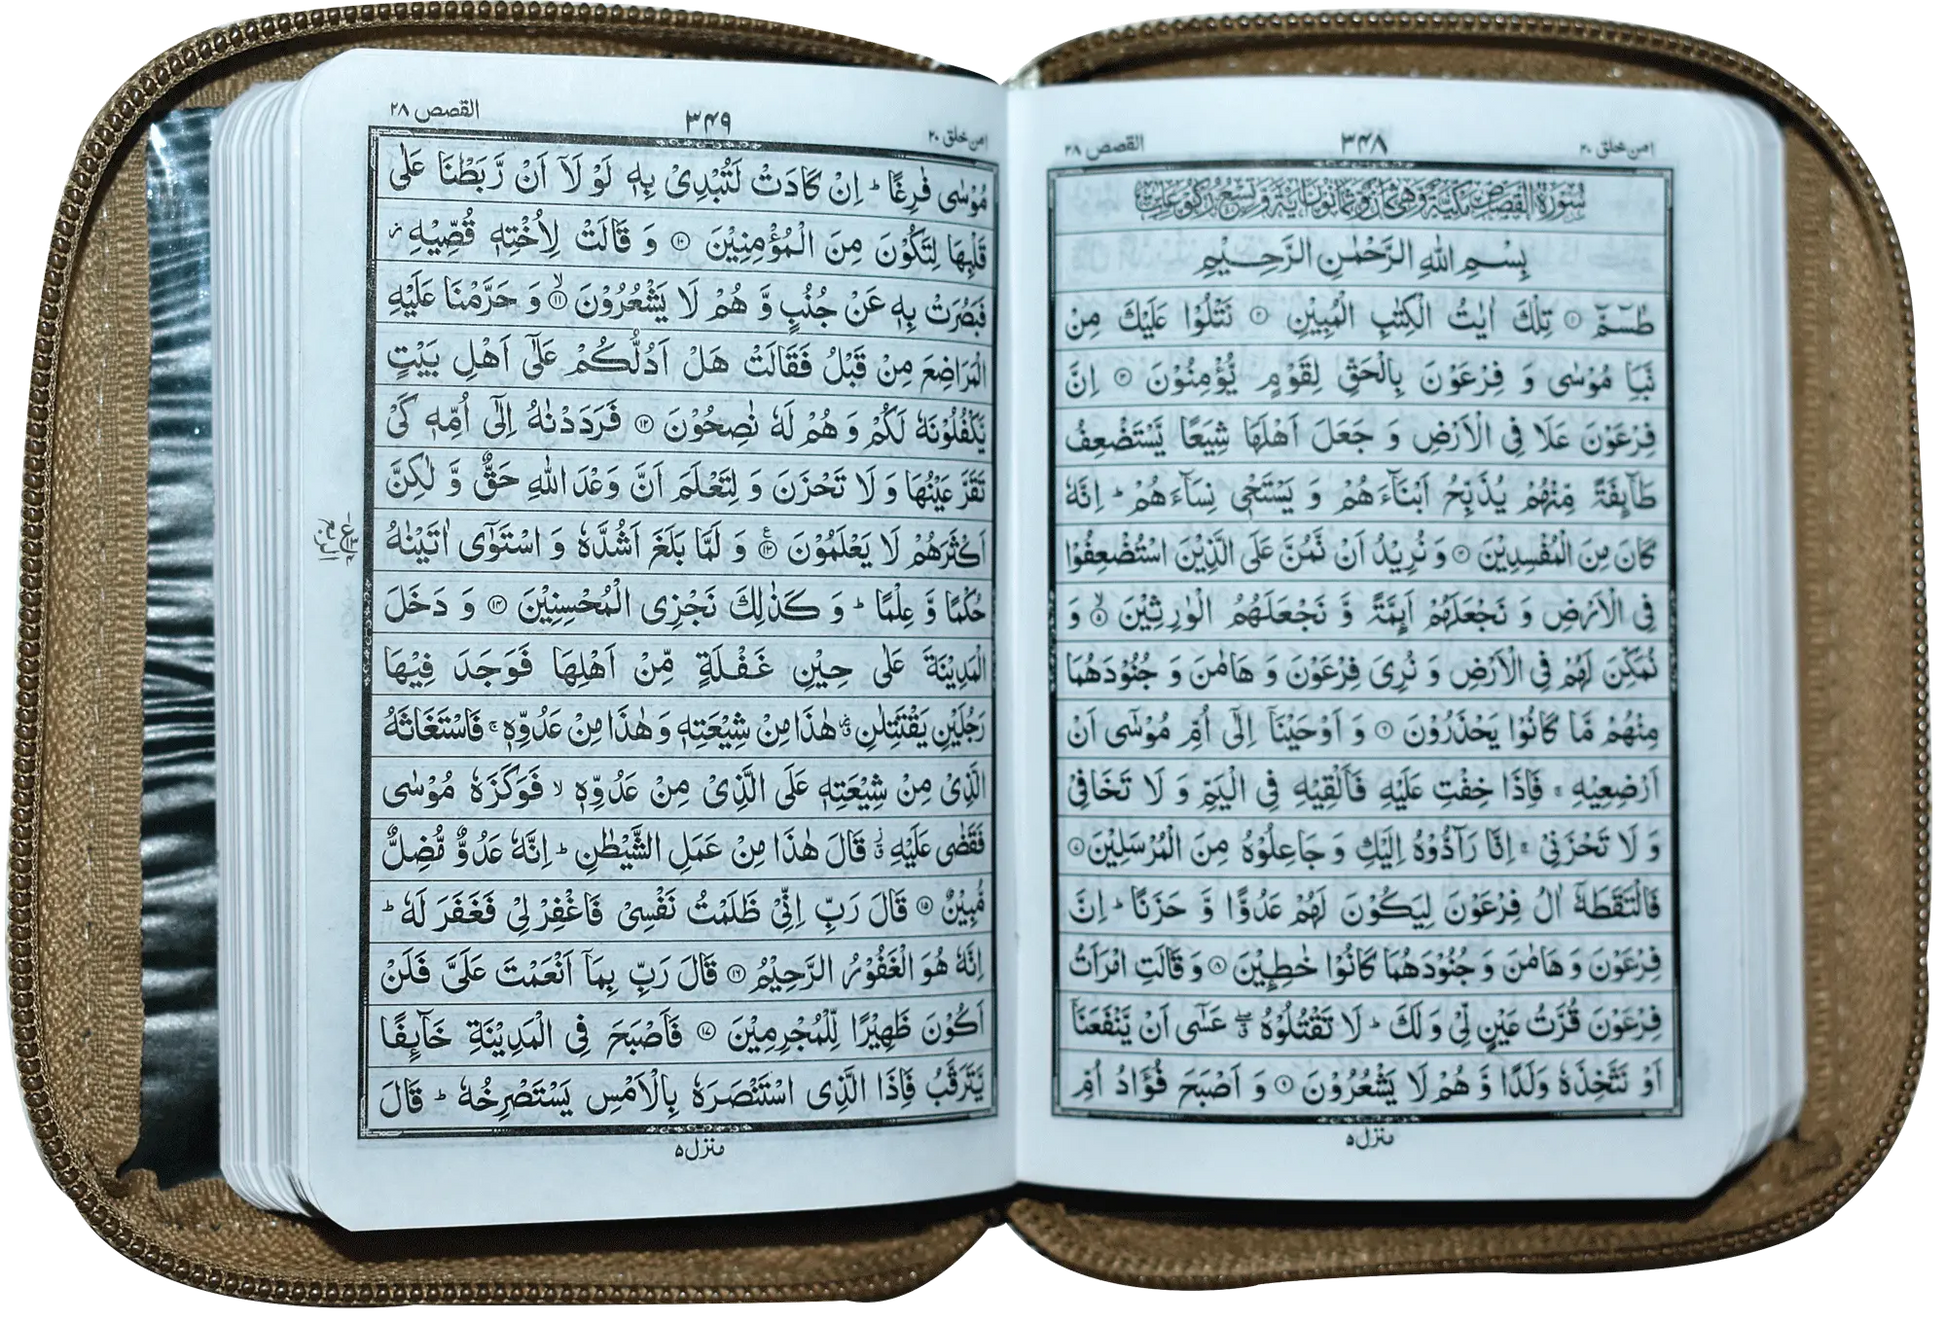 القصص ۲۸
۳۴۸
امن خلق ۲۰
سُوْرَةُ الْقَصَصِ مَكِّيَّةٌ وَّهِيَ ثَمَانٌ وَّثَمَانُوْنَ اٰيَةً وَّتِسْعُ رُكُوْعَاتٍ
بِسْمِ اللهِ الرَّحْمٰنِ الرَّحِيْمِ
طٰسٓمّٓ ۝۱ تِلْكَ اٰيٰتُ الْكِتٰبِ الْمُبِيْنِ ۝۲ نَتْلُوْا عَلَيْكَ مِنْ
نَّبَاِ مُوْسٰى وَ فِرْعَوْنَ بِالْحَقِّ لِقَوْمٍ يُّؤْمِنُوْنَ ۝۳ اِنَّ
فِرْعَوْنَ عَلَا فِى الْاَرْضِ وَ جَعَلَ اَهْلَهَا شِيَعًا يَّسْتَضْعِفُ
طَآئِفَةً مِّنْهُمْ يُذَبِّحُ اَبْنَآءَهُمْ وَ يَسْتَحْىٖ نِسَآءَهُمْ ؕ اِنَّهٗ
كَانَ مِنَ الْمُفْسِدِيْنَ ۝۴ وَ نُرِيْدُ اَنْ نَّمُنَّ عَلَى الَّذِيْنَ اسْتُضْعِفُوْا
فِى الْاَرْضِ وَ نَجْعَلَهُمْ اَئِمَّةً وَّ نَجْعَلَهُمُ الْوٰرِثِيْنَ ۙ۝۵ وَ
نُمَكِّنَ لَهُمْ فِى الْاَرْضِ وَ نُرِىَ فِرْعَوْنَ وَ هَامٰنَ وَ جُنُوْدَهُمَا
مِنْهُمْ مَّا كَانُوْا يَحْذَرُوْنَ ۝۶ وَ اَوْحَيْنَاۤ اِلٰۤى اُمِّ مُوْسٰۤى اَنْ
اَرْضِعِيْهِ ۚ فَاِذَا خِفْتِ عَلَيْهِ فَاَلْقِيْهِ فِى الْيَمِّ وَ لَا تَخَافِىْ
وَ لَا تَحْزَنِىْ ۚ اِنَّا رَآدُّوْهُ اِلَيْكِ وَ جَاعِلُوْهُ مِنَ الْمُرْسَلِيْنَ ۝۷
فَالْتَقَطَهٗۤ اٰلُ فِرْعَوْنَ لِيَكُوْنَ لَهُمْ عَدُوًّا وَّ حَزَنًا ؕ اِنَّ
فِرْعَوْنَ وَ هَامٰنَ وَ جُنُوْدَهُمَا كَانُوْا خٰطِئِيْنَ ۝۸ وَ قَالَتِ امْرَاَتُ
فِرْعَوْنَ قُرَّتُ عَيْنٍ لِّىْ وَ لَكَ ؕ لَا تَقْتُلُوْهُ ۖۗ عَسٰۤى اَنْ يَّنْفَعَنَاۤ
اَوْ نَتَّخِذَهٗ وَلَدًا وَّ هُمْ لَا يَشْعُرُوْنَ ۝۹ وَ اَصْبَحَ فُؤَادُ اُمِّ
منزل۵
القصص ۲۸
۳۴۹
امن خلق ۲۰
مُوْسٰى فٰرِغًا ؕ اِنْ كَادَتْ لَتُبْدِىْ بِهٖ لَوْ لَاۤ اَنْ رَّبَطْنَا عَلٰى
قَلْبِهَا لِتَكُوْنَ مِنَ الْمُؤْمِنِيْنَ ۝۱۰ وَ قَالَتْ لِاُخْتِهٖ قُصِّيْهِ ز
فَبَصُرَتْ بِهٖ عَنْ جُنُبٍ وَّ هُمْ لَا يَشْعُرُوْنَ ۙ۝۱۱ وَ حَرَّمْنَا عَلَيْهِ
الْمَرَاضِعَ مِنْ قَبْلُ فَقَالَتْ هَلْ اَدُلُّكُمْ عَلٰۤى اَهْلِ بَيْتٍ
يَّكْفُلُوْنَهٗ لَكُمْ وَ هُمْ لَهٗ نٰصِحُوْنَ ۝۱۲ فَرَدَدْنٰهُ اِلٰۤى اُمِّهٖ كَىْ
تَقَرَّ عَيْنُهَا وَ لَا تَحْزَنَ وَ لِتَعْلَمَ اَنَّ وَعْدَ اللّٰهِ حَقٌّ وَّ لٰكِنَّ
اَكْثَرَهُمْ لَا يَعْلَمُوْنَ ۝۱۳ وَ لَمَّا بَلَغَ اَشُدَّهٗ وَ اسْتَوٰۤى اٰتَيْنٰهُ
حُكْمًا وَّ عِلْمًا ؕ وَ كَذٰلِكَ نَجْزِى الْمُحْسِنِيْنَ ۝۱۴ وَ دَخَلَ
الْمَدِيْنَةَ عَلٰى حِيْنِ غَفْلَةٍ مِّنْ اَهْلِهَا فَوَجَدَ فِيْهَا
رَجُلَيْنِ يَقْتَتِلٰنِ ۗ هٰذَا مِنْ شِيْعَتِهٖ وَ هٰذَا مِنْ عَدُوِّهٖ ۚ فَاسْتَغَاثَهُ
الَّذِىْ مِنْ شِيْعَتِهٖ عَلَى الَّذِىْ مِنْ عَدُوِّهٖ ۙ فَوَكَزَهٗ مُوْسٰى
فَقَضٰى عَلَيْهِ ۗ قَالَ هٰذَا مِنْ عَمَلِ الشَّيْطٰنِ ؕ اِنَّهٗ عَدُوٌّ مُّضِلٌّ
مُّبِيْنٌ ۝۱۵ قَالَ رَبِّ اِنِّىْ ظَلَمْتُ نَفْسِىْ فَاغْفِرْ لِىْ فَغَفَرَ لَهٗ ؕ
اِنَّهٗ هُوَ الْغَفُوْرُ الرَّحِيْمُ ۝۱۶ قَالَ رَبِّ بِمَاۤ اَنْعَمْتَ عَلَىَّ فَلَنْ
اَكُوْنَ ظَهِيْرًا لِّلْمُجْرِمِيْنَ ۝۱۷ فَاَصْبَحَ فِى الْمَدِيْنَةِ خَآئِفًا
يَّتَرَقَّبُ فَاِذَا الَّذِى اسْتَنْصَرَهٗ بِالْاَمْسِ يَسْتَصْرِخُهٗ ؕ قَالَ
منزل۵